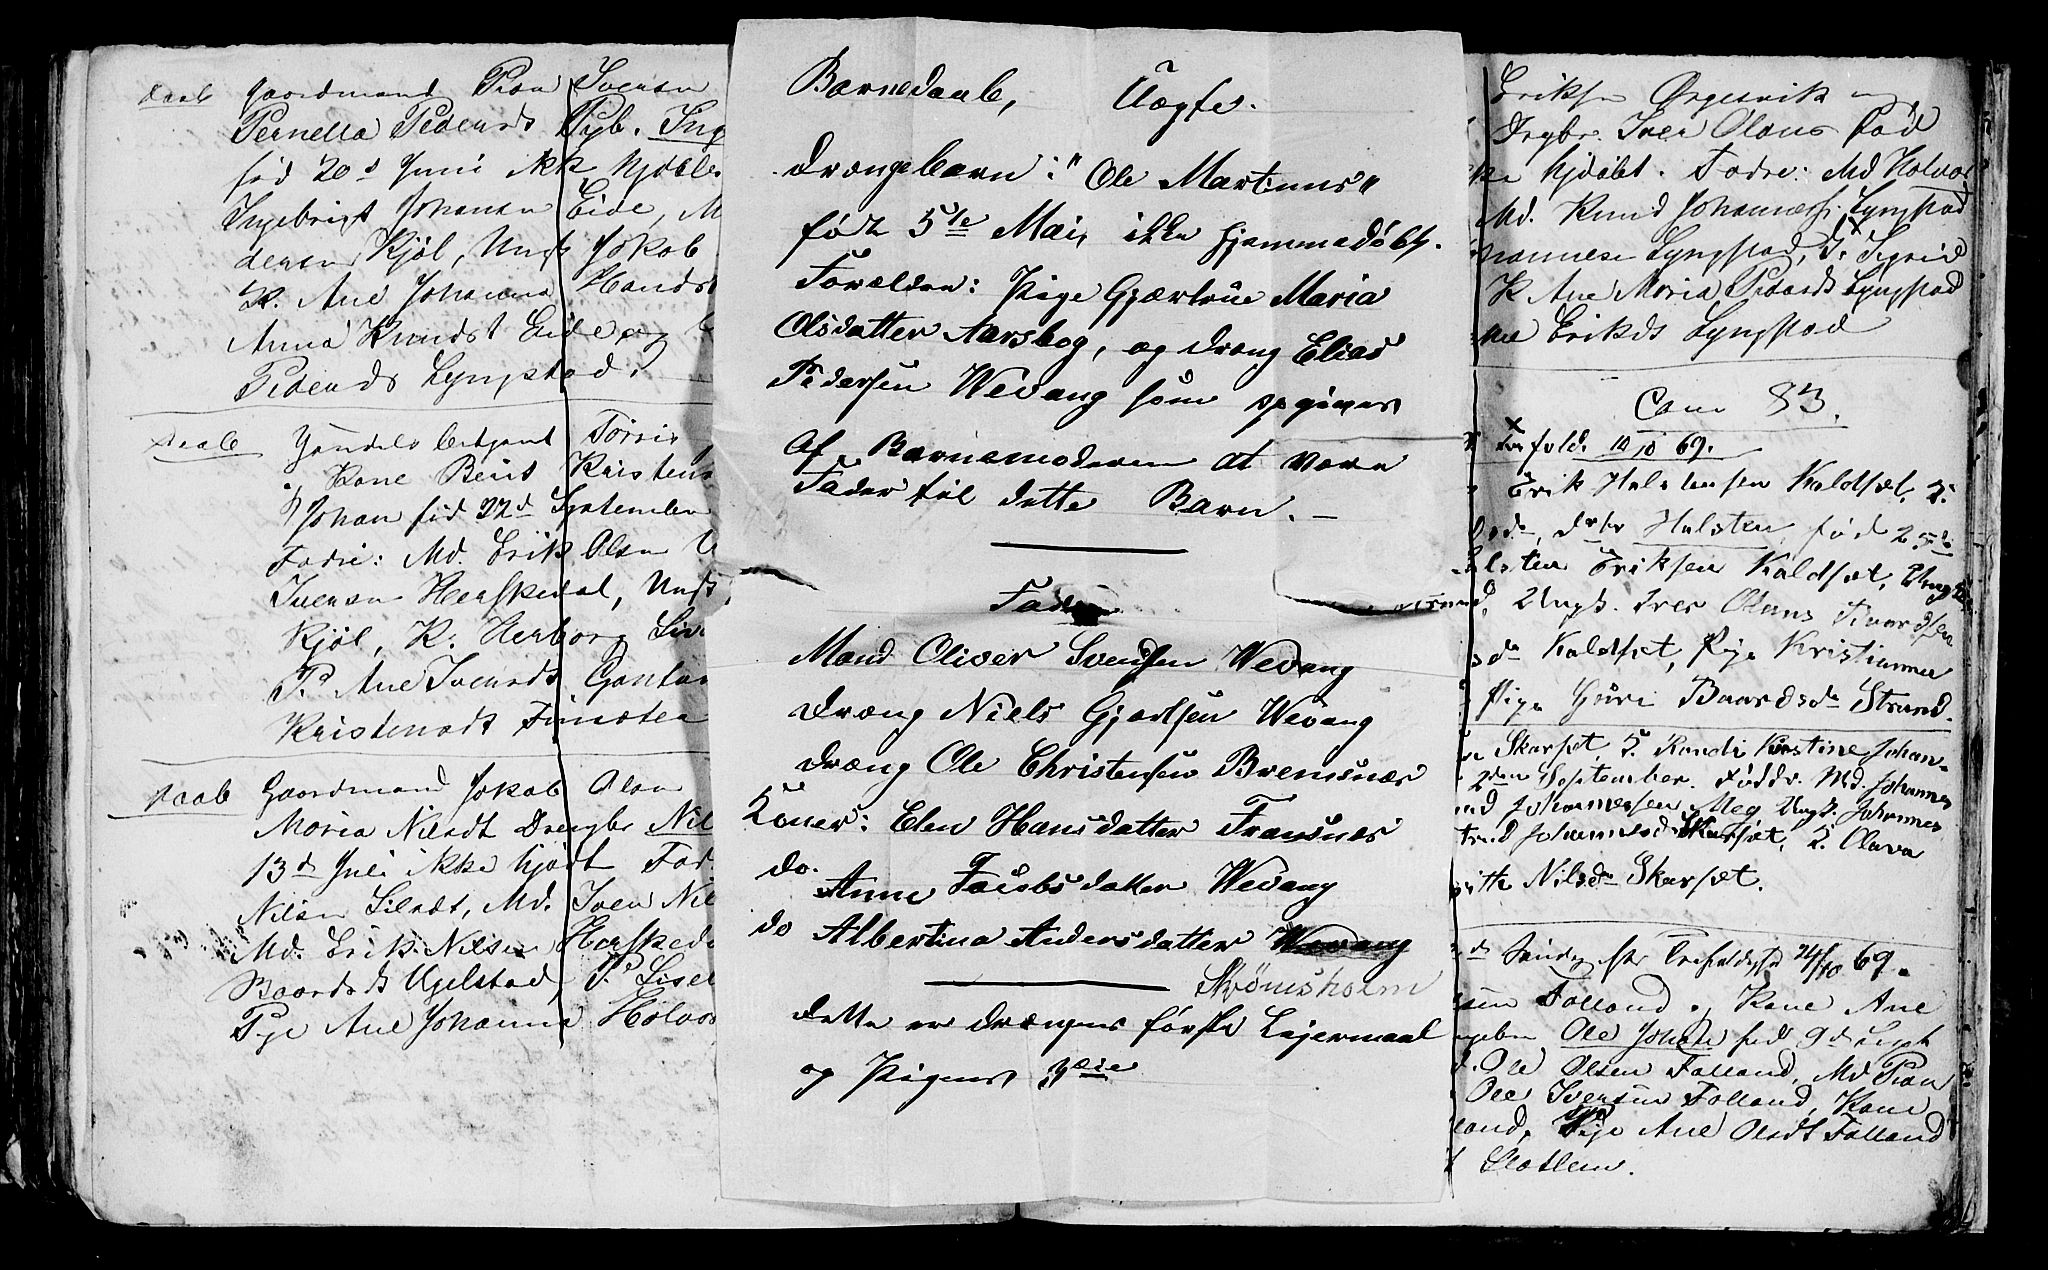 Daab Gaardmand Peder Iversen
Pernella Pedersdt Pgb. Ing
fød 20de Juni ikk hjdbt
Ingebrigt Johansen Eide, M
dersen Kjøl, Ungk Jakob
K. Ane Johanna Hansdt
Anna Knudsdt Eide, og
Pedersdt Lyngstad.
Daab
Kone Berit Kristens
Johan fød 22d September
Fadre: Md. Erik Olsen
Iversen Herskedal, Ungk.
Kjøl, K. Herborg
P. Ane Iversdt
Kristensdt
Daab Gaardmand Jakob Olsen
Maria Nilsdt Drengbr Nil
13d Juli ikke hjdbt Fad
Nilsen Md. Iver Nil
Md. Erik Nilsen Herskeda
Baardsdt Ugelstad, P. Lisel
Pige Ane Johanna Holvor
Barnedaab, Uægte.
Drængebarn: "Ole Martinus"
født 5te Mai, ikke hjemmedøbt.
Forældre: Pige Gjærtrue Maria
Olsdatter Aarsbog, og Dræng Elias
Pedersen Wevang som opgives
af Barnemoderen at være
Fader til dette Barn. —
Faddere
Mand Oliver Svendsen Wevang
Dræng Niels Gjertsen Wevang
Dræng Ole Christensen Bremsnæs
Koner: Elen Hansdatter Frausnes
do. Anne Jacobsdatter Wevang
do Albertina Andersdatter Wevang
Strømsholm
Dette er Drængens første Lejermaal
og Pigens 3die
Eriksen Ørgesvik
Drgbr. Iver Olaus fød
ke hjdøbt. Fadre: Md Halvor
Md. Knud Johanness. Lyngstad
hannesen Lyngstad, P. Sigrid
K Ane Maria Pedersdt Lyngstad
ne Eriksdt Lyngstad
Cam 83.
Trefold. 10/10 69.
Erik Halstensen Koldsæt,
sda, drbr Halsten, fød 25de
alsten Eriksen Koldsæt, Ungk
Ungk. Iver Olaus Knudsen
sda Koldsæt, Pige Kristianne
Pige Guri Baardsda Strand.
Skarsæt, P. Randi Kirstine Johan-
2den September. Faddr. Md. Johannes
nd Johannessen Meg Ungk. Johannes
trud Johannesd. Skarsæt, P. Olava
ritte Nilsda Skarsæt.
de Søndag efter Trefoldighed 24/10 69.
sen Folland og Kone Ane
ngebr Ole Johan fød 9d Sept
d. Ole Olsen Folland, Md Peder
Ole Iversen Folland, Kone
land, Pige Ane Olsdt Folland